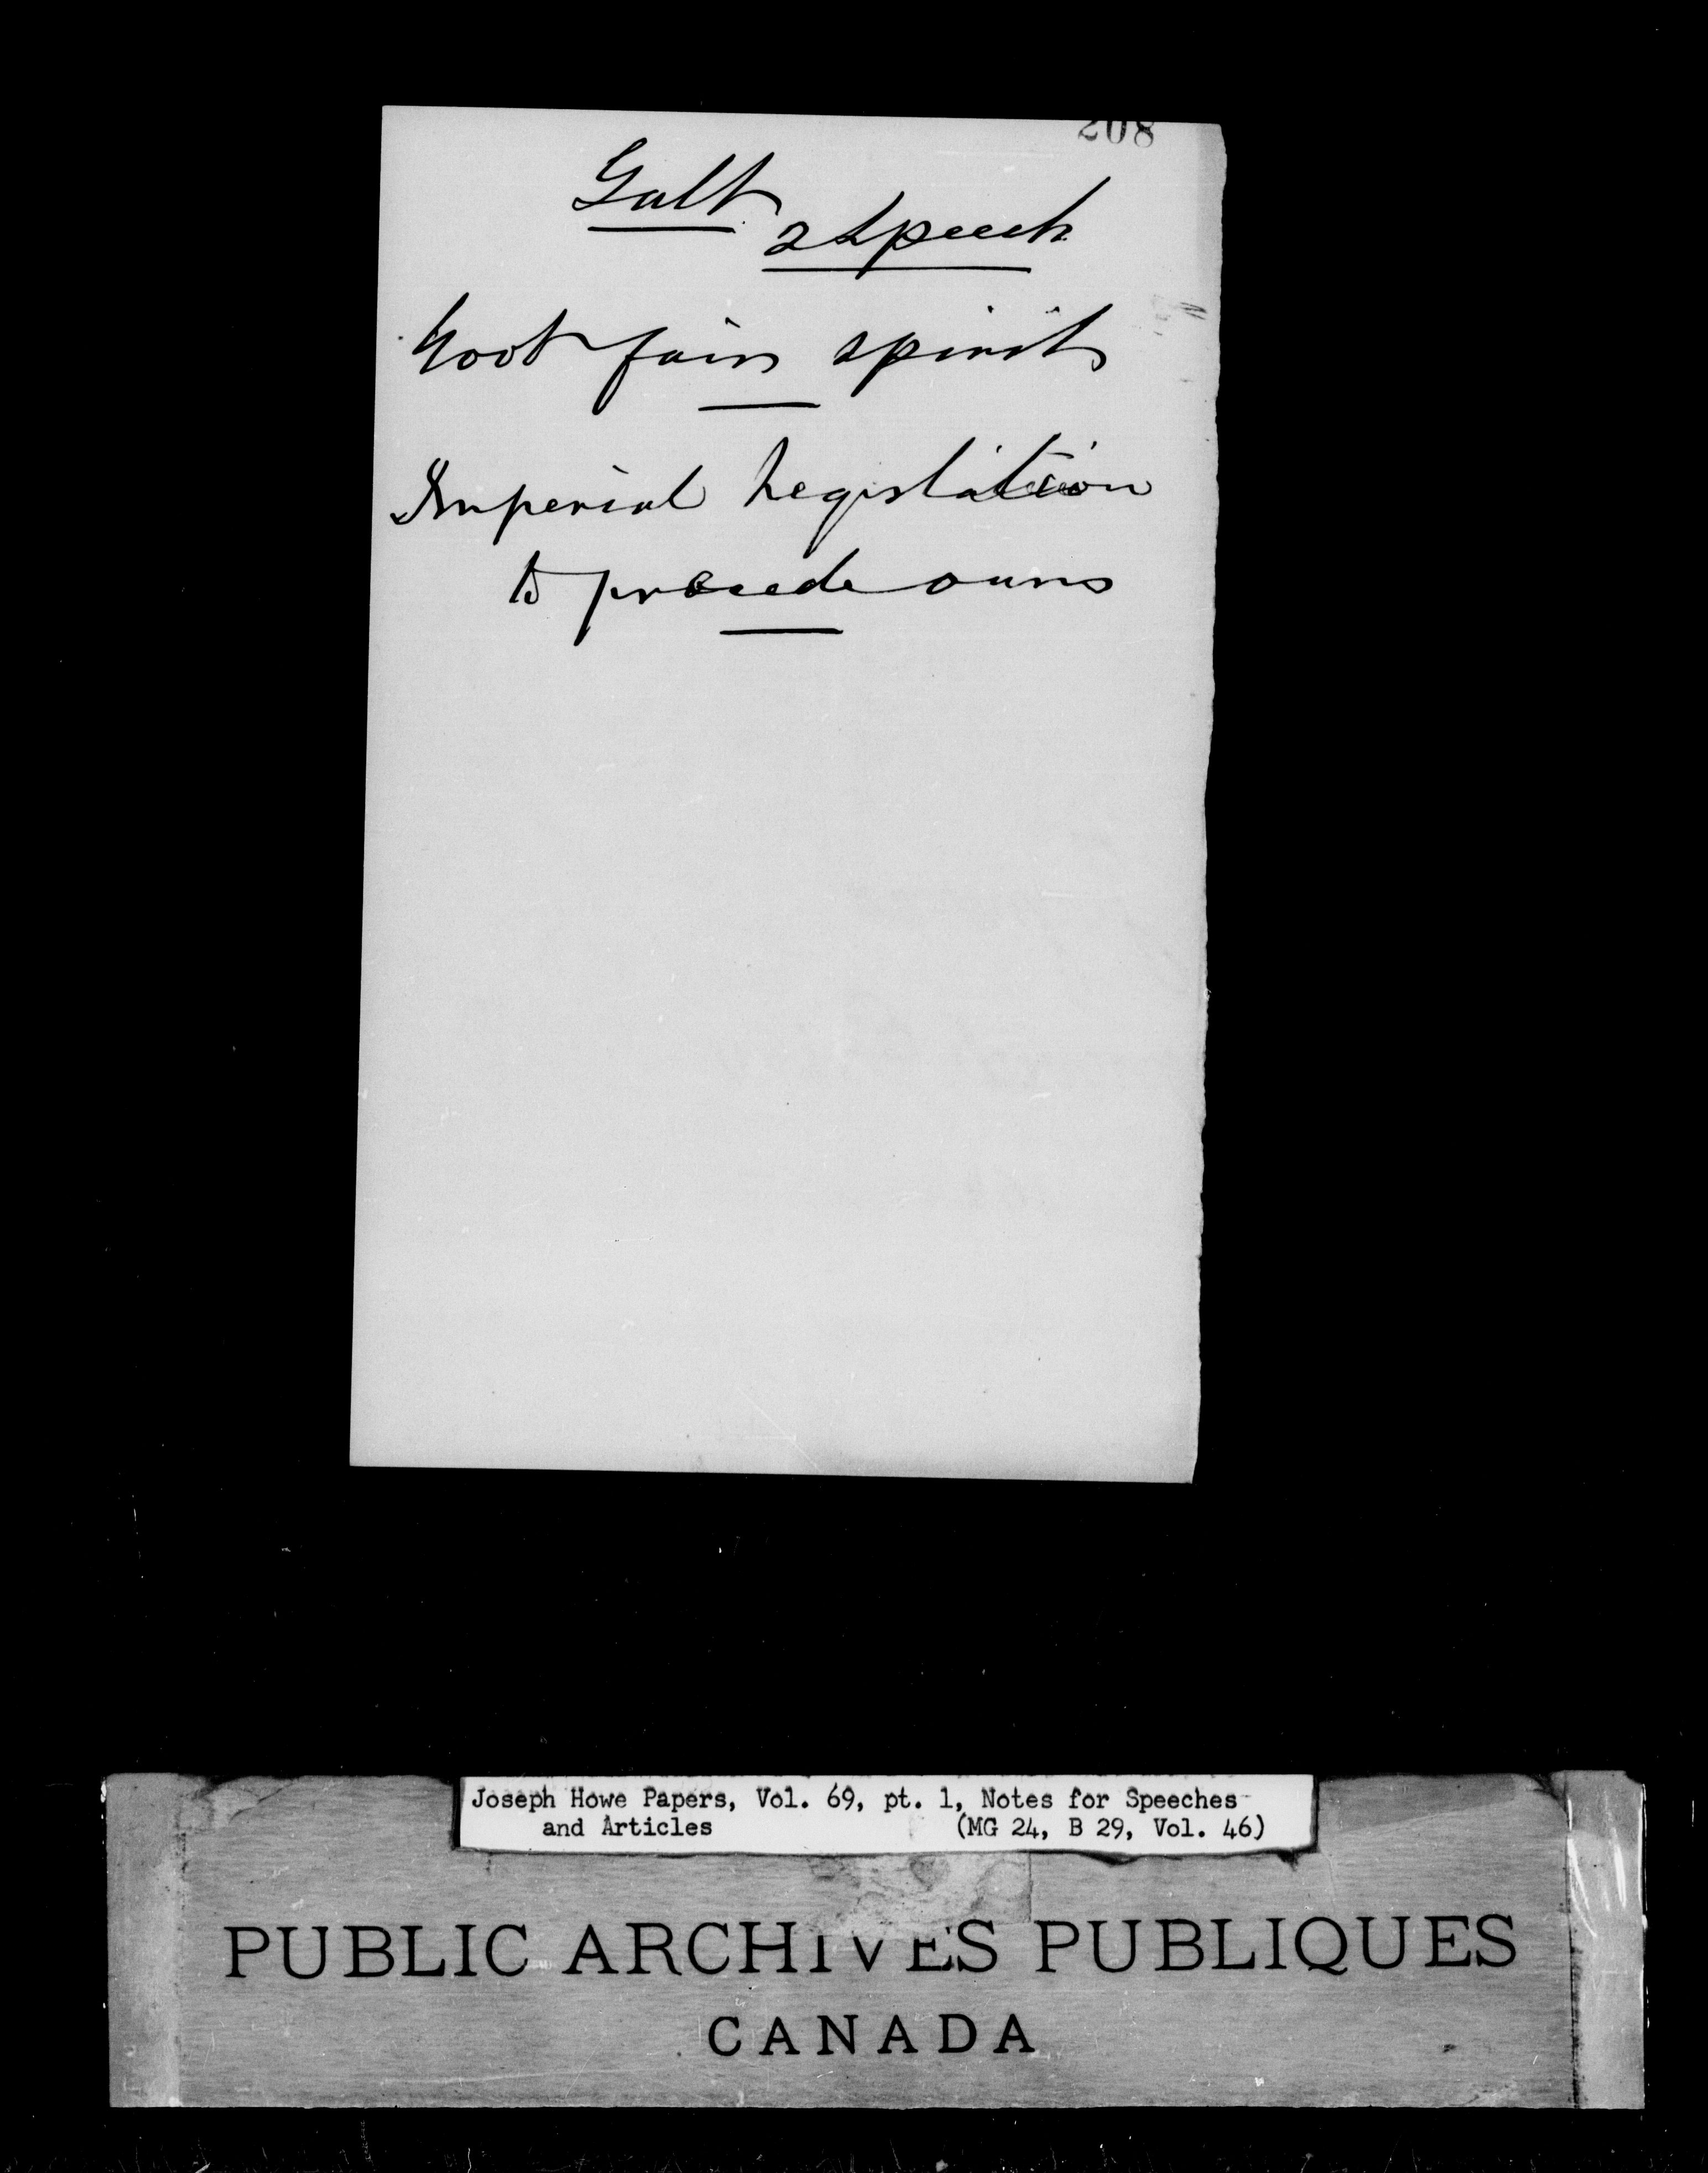 208
Galt
2 Speech
Good fair spirit
Imperial Legislation
to precede ours
Joseph Howe Papers, Vol. 69, pt. 1, Notes for Speeches
and Articles (MG 24, B 29, Vol. 46)
PUBLIC ARCHIVES PUBLIQUES
CANADA